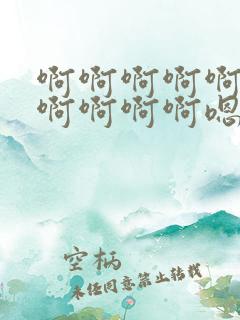 啊啊啊啊啊
啊啊啊啊嗯
空柄
未经同意禁止转载